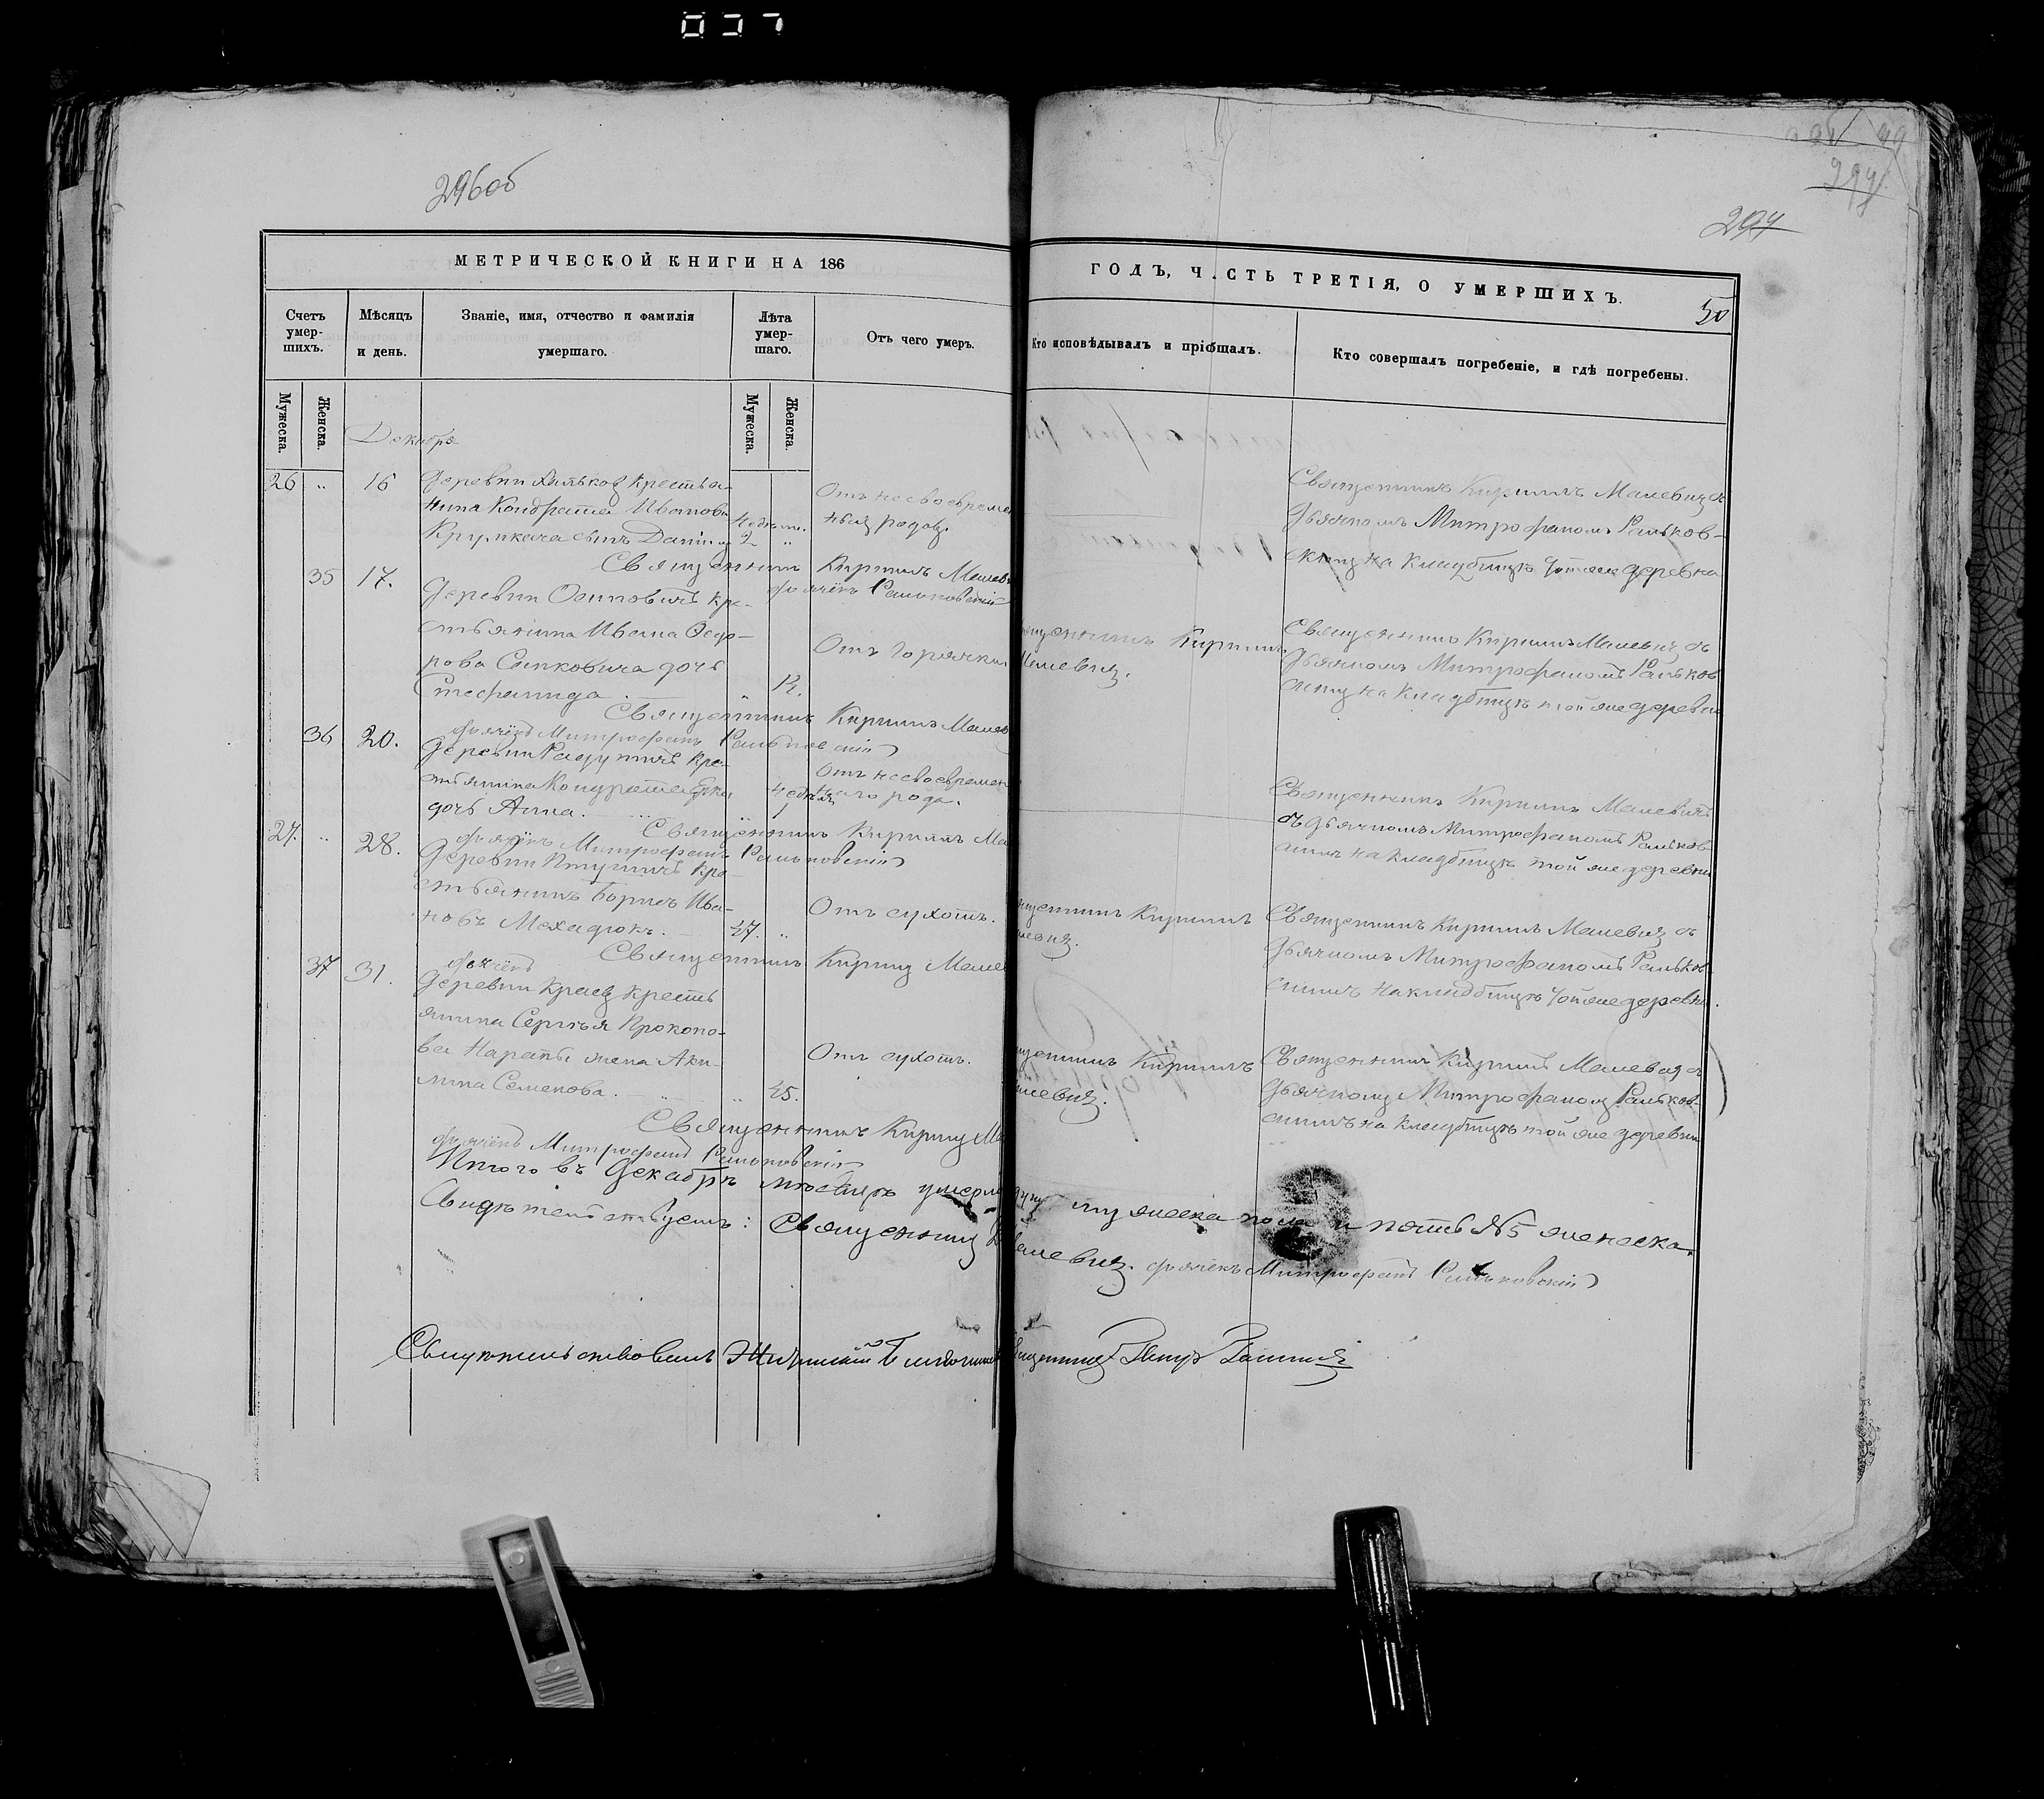 037
296об
99
297
297
МЕТРИЧЕСКОЙ КНИГИ НА 186
ГОДЪ, ЧАСТЬ ТРЕТІЯ, О УМЕРШИХЪ.
50
Счетъ умер-
шихъ.
Мѣсяцъ
и день.
Званіе, имя, отчество и фамилія
умершаго.
Лѣта
умер-
шаго.
Отъ чего умеръ.
Кто исповѣдывалъ и пріобщалъ.
Кто совершалъ погребеніе, и гдѣ погребены.
Мужеска.
Женска.
Мужеска.
Женска.
Декабря
26 „ 16 деревни крестья-
нина Кондрата Иванова
Крупкача сынъ Данiилъ
недѣли.
2 „
Отъ несвоевремен
ныхъ родовъ.
Священникъ Кириллъ Малевичъ съ
дьячкомъ Митрофаномъ Раньков-
скимъ на кладбищѣ той же деревни
Священникъ Кириллъ Малеви
дьячекъ Раньковскій
35 17. деревни Осиповичъ кре-
стьянина Ивана Ѳедо-
рова Сенковича дочь
Стефанида „ 12.
Отъ горячки
Священникъ Кириллъ
Малевичъ.
Священникъ Кириллъ Малевичъ съ
дьячкомъ Митрофаномъ Раньков
скимъ на кладбищѣ той же деревни
Священникъ Кириллъ Малев
дьячекъ Митрофанъ Раньковскій
36 20. деревни кре-
стьянина Кондрата
дочь Анна.
недѣля
1
Отъ несвоевремен
наго рода.
Священникъ Кириллъ Малевичъ
съ дьячкомъ Митрофаномъ Раньков
скимъ на кладбищѣ той же деревни
Священникъ Кириллъ Ма
дьячекъ Митрофанъ Раньковскій
27. „ 28. деревни Птушичъ кре-
стьянинъ Борисъ Ива-
новъ Механдюкъ. 47. „
Отъ сухотъ.
Священникъ Кириллъ
Малевичъ.
Священникъ Кириллъ Малевичъ съ
дьячкомъ Митрофаномъ Раньков
скимъ на кладбищѣ той же деревни.
Священникъ Кириллъ Мале
дьячекъ
37 31. деревни крестья
янина Сергѣя Прокопо-
ва жена Аку-
лина Семенова. „ 45.
Отъ сухотъ.
Священникъ Кириллъ
Малевичъ.
Священникъ Кириллъ Малевичъ съ
дьячкомъ Митрофаномъ Раньков-
скимъ на кладбищѣ той же деревни
Священникъ Кириллъ Ма
дьячекъ Митрофанъ Раньковскій
Итого въ Декабрѣ мѣсяцѣ умерло мужеска пола и пять №5 женска.
Свидѣтельствуемъ: Священникъ Малевичъ. дьячекъ Митрофанъ Раньковскій
Свидѣтельствовалъ Благочинный Священникъ Петръ